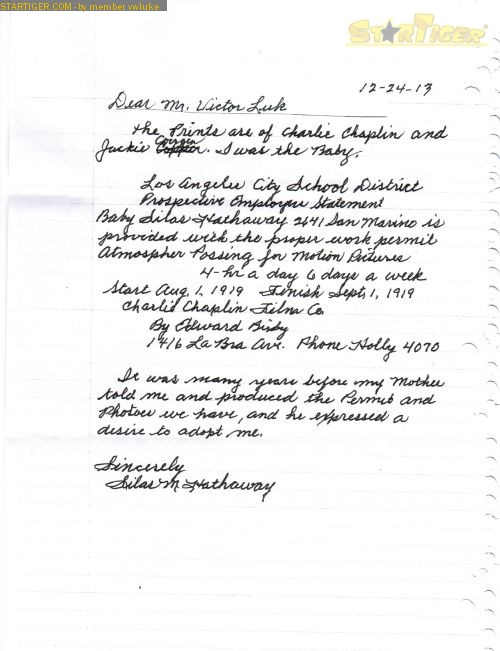 STARTIGER.COM - by member vwluke
STARTIGER
12-24-13
Dear Mr. Victor Luk
The Prints are of Charlie Chaplin and
Jackie Coogan. I was the Baby.
Los Angeles City School District
Prospective Employers Statement
Baby Silas Hathaway 2641 San Marino is
provided with the proper work permit
Atmospher Possing for Motion Pictures
4-hr a day 6 days a week
Start Aug. 1, 1919 Finish Sept. 1, 1919
Charlie Chaplin Films Co.
By Edward Biby
1416 La Bra Ave. Phone Holly 4070
It was many years before my Mother
told me and produced the Permit and
Photoes we have, and he expressed a
desire to adopt me.
Sincerely
Silas M. Hathaway